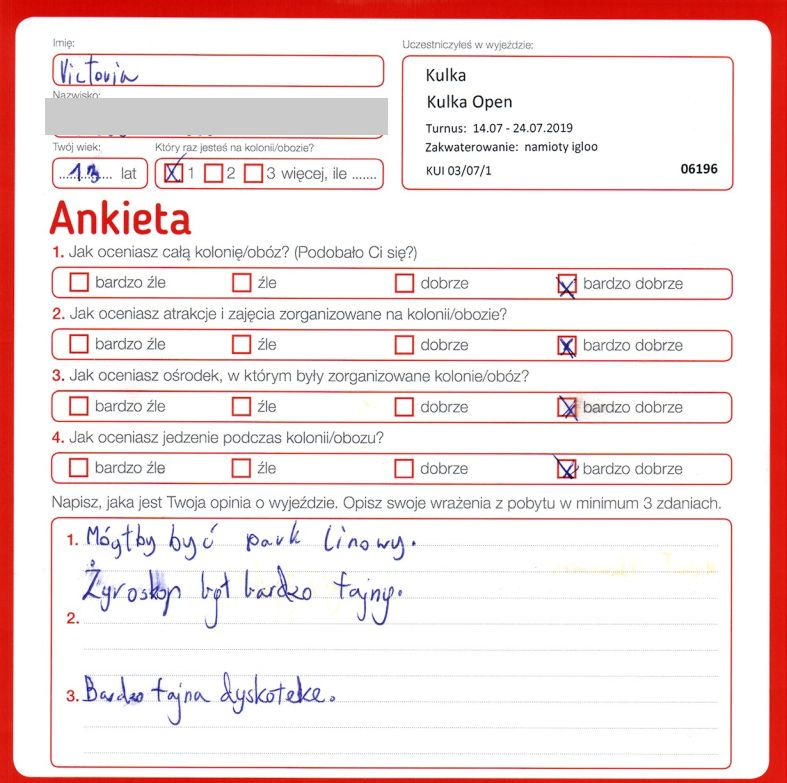 Imię:
Uczestniczyłeś w wyjeździe:
Victoria
Kulka
Kulka Open
Nazwisko:
Turnus: 14.07 - 24.07.2019
Zakwaterowanie: namioty igloo
KUI 03/07/1 06196
Twój wiek: Który raz jesteś na kolonii/obozie?
13 lat 1 2 3 więcej, ile .......
Ankieta
1. Jak oceniasz całą kolonię/obóz? (Podobało Ci się?)
bardzo źle źle dobrze bardzo dobrze
2. Jak oceniasz atrakcje i zajęcia zorganizowane na kolonii/obozie?
bardzo źle źle dobrze bardzo dobrze
3. Jak oceniasz ośrodek, w którym były zorganizowane kolonie/obóz?
bardzo źle źle dobrze bardzo dobrze
4. Jak oceniasz jedzenie podczas kolonii/obozu?
bardzo źle źle dobrze bardzo dobrze
Napisz, jaka jest Twoja opinia o wyjeździe. Opisz swoje wrażenia z pobytu w minimum 3 zdaniach.
1. Mógłby być park linowy.
Żyroskop był bardzo fajny.
2.
3. Bardzo fajna dyskoteke.